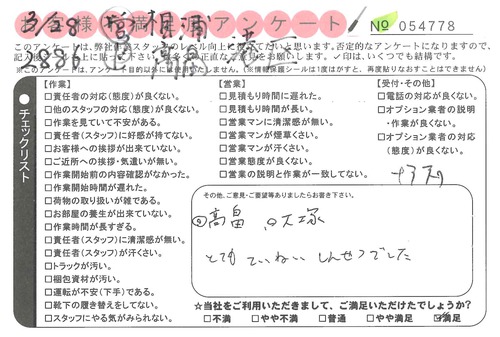 お客様満足度アンケート
№ 054778
3/28
3886
このアンケートは、弊社
※このアンケートは、アンケート目的以外に
しません。(※情報保護シールは1度はがすと、再度貼りなおすことはできません)
チェックリスト
【作業】
□責任者の対応(態度)が良くない。
□他のスタッフの対応(態度)が良くない。
□作業を見ていて不安がある。
□責任者(スタッフ)に好感が持てない。
□お客様への挨拶が出来ていない。
□ご近所への挨拶・気遣いが無い。
□作業開始前の内容確認がなかった。
□作業開始時間が遅れた。
□荷物の取り扱いが雑である。
□お部屋の養生が出来ていない。
□作業時間が長すぎる。
□責任者(スタッフ)に清潔感が無い。
□責任者(スタッフ)が汗くさい。
□トラックが汚い。
□梱包資材が汚い。
□運転が不安(下手)である。
□靴下の履き替えをしてない。
□スタッフにやる気がみられない。
【営業】
□見積もり時間に遅れた。
□見積もり時間が長い。
□営業マンに清潔感が無い。
□営業マンが煙草くさい。
□営業マンが汗くさい。
□営業態度が良くない。
□営業の説明と作業が一致してない。
【受付・その他】
□電話の対応が良くない。
□オプション業者の説明
・作業が良くない。
□オプション業者の対応
(態度)が良くない。
その他、ご意見・ご要望等ありましたらお書き下さい。
高畠 大塚
とても ていねい しんせつでした
☆当社をご利用いただきまして、ご満足いただけたでしょうか?
□不満 □やや不満 □普通 □やや満足 ☑満足